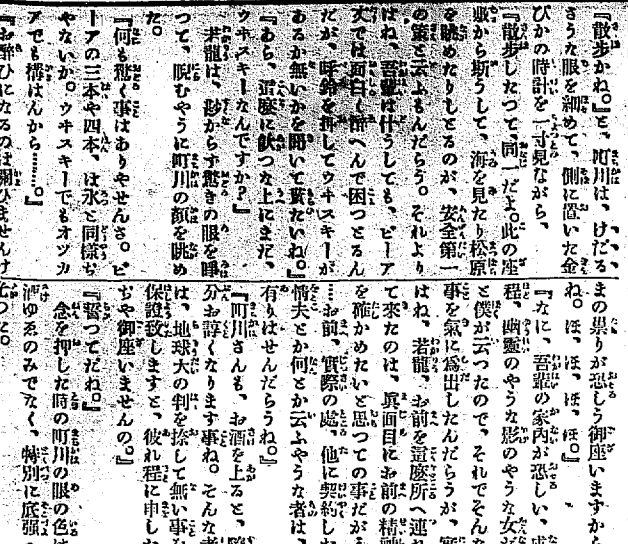 『散歩かね。』と、町川は、けだる
さうな眼を細めて、側に置いた金
ぴかの時計を一寸見ながら、
『散歩したつて、同一だよ。此の座
敷から斯うして、海を見たり松原
を眺めたりしとるのが、安全第一
の策と云ふもんだらう。それより
はね、吾輩は什うしても、ビーア
丈では面白く酔へんで困つとるん
だが、呼鈴を押してウヰスキーが
あるか無いかを聞いて貰たいね。』
『あら、這麽に飲つた上にまだ、
ウヰスキーなんですか？』
若龍は、尠からず驚きの眼を睜
つて、眠むさうに町川の顔を眺め
た。
『何も驚く事はありやせんさ。ビ
ーアの三本や四本、は氷と同様ぢ
やないか。ウヰスキーでもオツカ
アでも構はんから……。』
『お酔ひになるのは関ひませんけ
まの祟りが恐しう御座いますから
ね。ほ、ほ、ほ、ほ。』
『なに、吾輩の家内が恐しい、成
程、幽霊のやうな影のやうな女だ
と僕が云つたので、それでそんな
事を気に為出したんだらうが、実
はね、若龍、お前を這麽所へ連れ
て来たのは、真面目にお前の精神
を確かめたいと思つての事だがね
…お前、実際の処、他に契約した
情夫とか何とか云ふやうな者は、
有りはせんだらうね。』
『町川さんも、お酒を上ると、随
分お諄くなります事ね。そんな者
は、地球大の判を捺して無い事を
保證致しますと、彼れ程に申した
ぢや御座いませんの。』
『誓つてだね。』
念を押した時の町川の眼の色は
酒ゆゑのみでなく、特別に底強